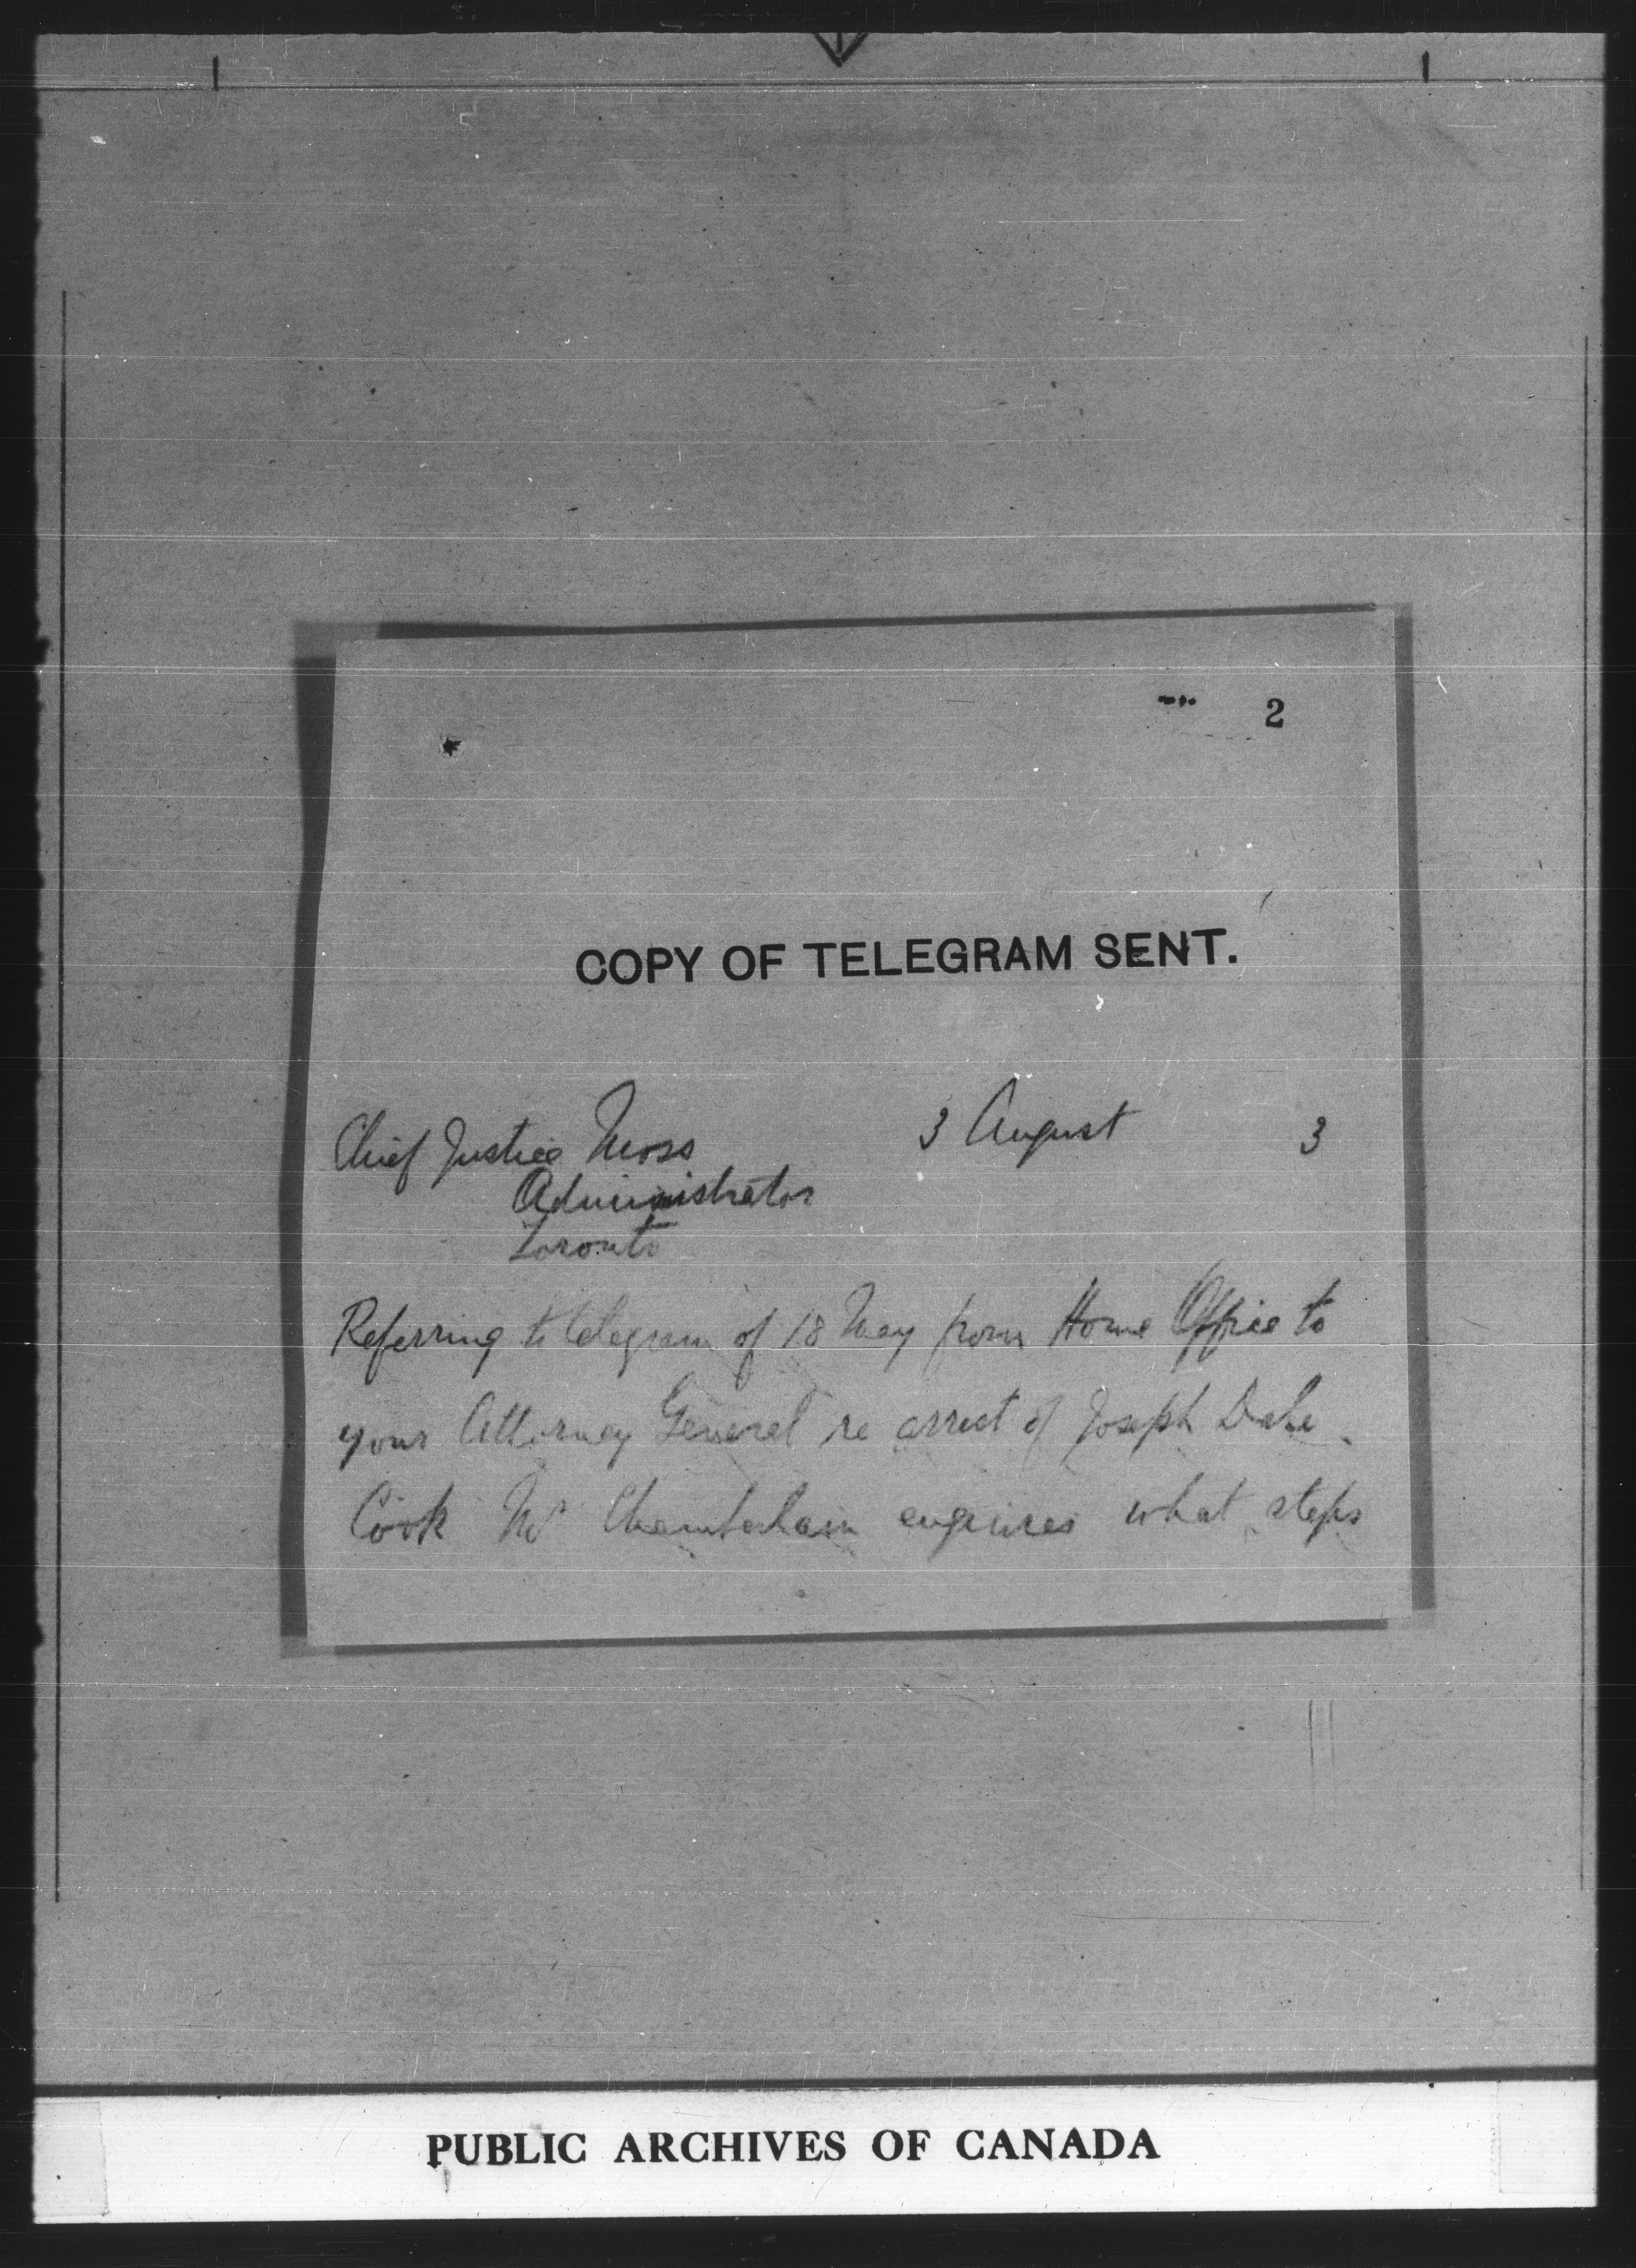 2
COPY OF TELEGRAM SENT.
Chief Justice Moss 3 August 3
Administrator
Toronto
Referring to telegram of 18 May from Home Office to
your Attorney General re arrest of Joseph Dale
Cook Mr Chamberlain enquires what steps
PUBLIC ARCHIVES OF CANADA